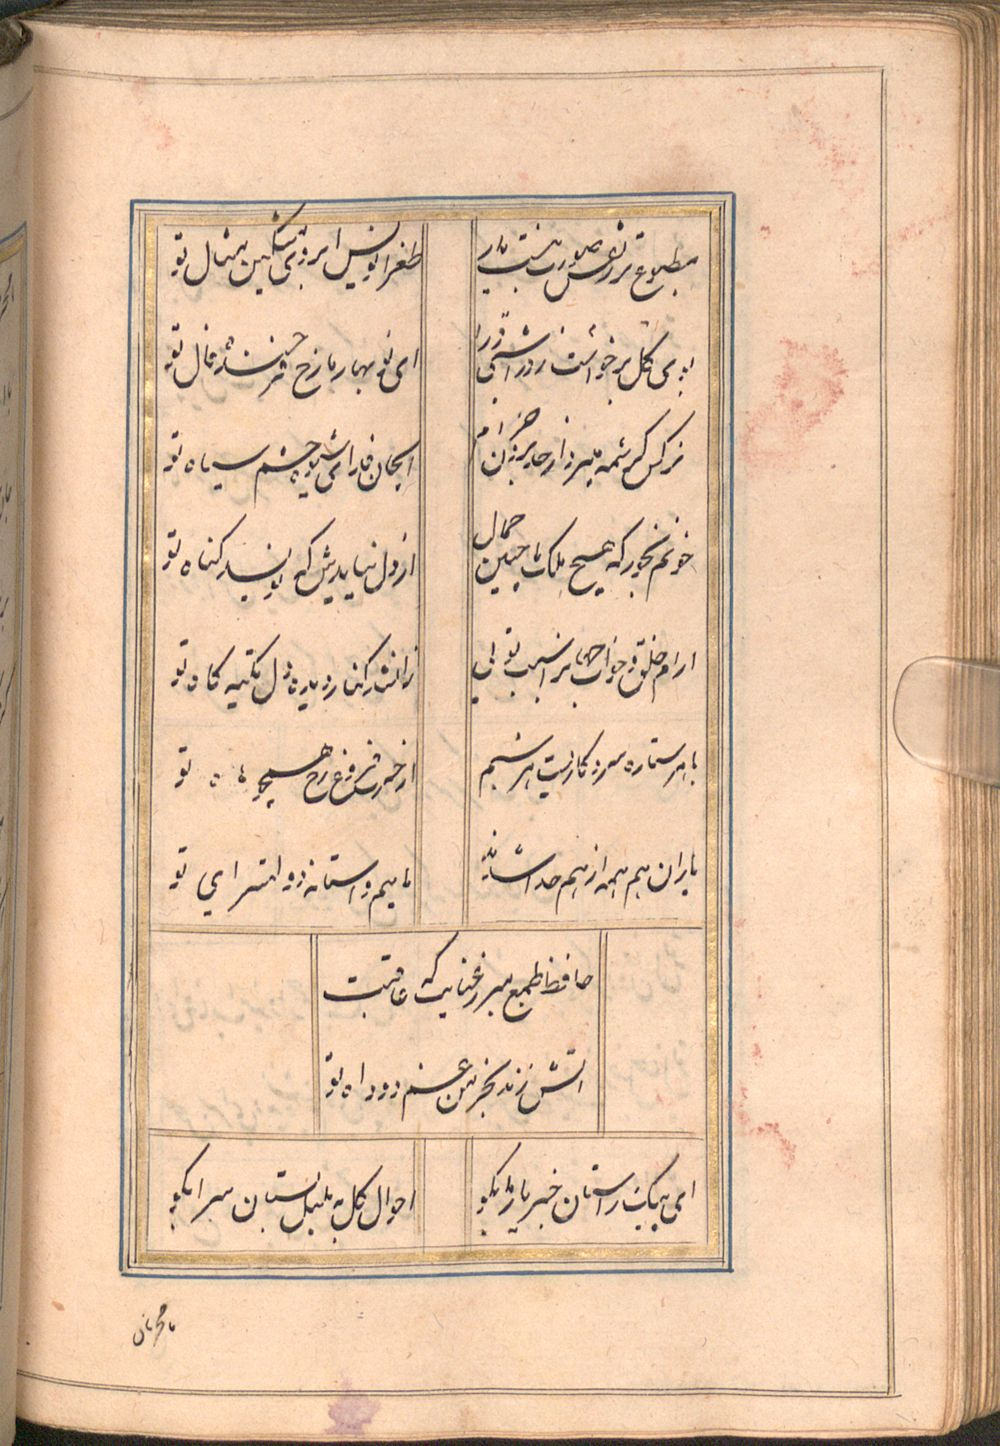 مطبوع تر ز نقش تو صورت نبست باز
طغرا نویس ابروی مشکین مثال تو
بوی گل برخواست ز در آشتی درا
ای نو بهار ما رخ فرخنده فال تو
نرکس کرشمه میبرد از حد برون خرام
ای جان فدای شیوه چشم سیاه تو
خونم بخور که هیچ ملک با چنین جمال
از دل نیایدش که نویسد کناه تو
ارام خلق و خواب جهانرا سبب تویی
زانشد کنار دیده و دل تکیه کاه تو
با هر ستاره سر و کاریست هر شبم
از حسرت فروغ رخ همچو ماه تو
یاران هم همه از هم جدا شدند
ماییم و استانه دولتسرای تو
حافظ طمع مبر ز عنایت که عاقبت
اتش زند بخرمن غم دود اه تو
ای پیک راستان خبر یار ما بکو
احوال کل به بلبل بستان سرا بکو
ما محرمان